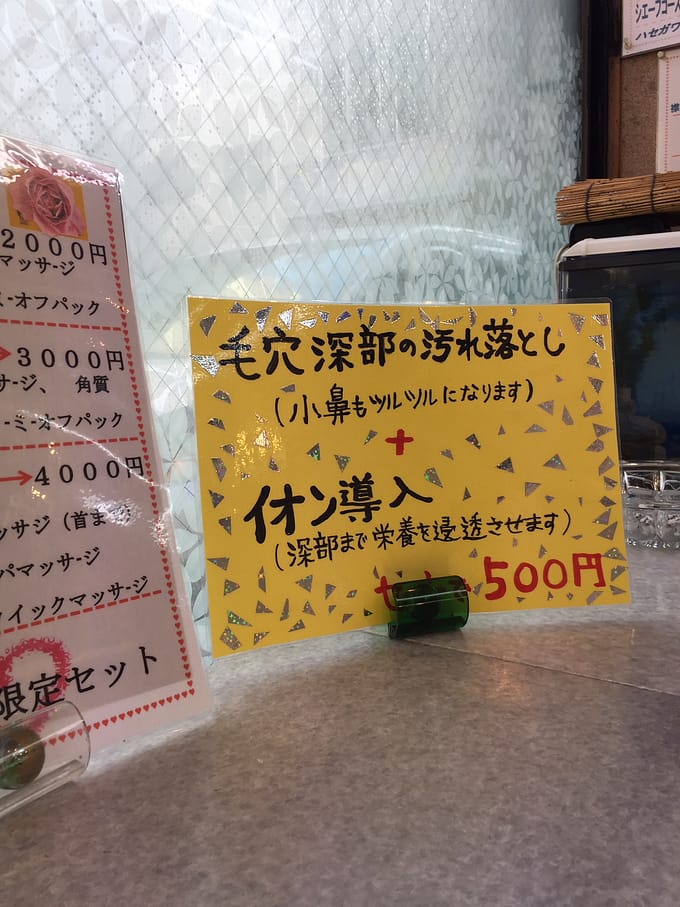 2000円
マッサージ
ミ-オフパック
3000円
サージ、 角質
-ミ-オフパック
4000円
ッサジ (首ま
パマッサージ
クイックマッサージ
限定セット
毛穴深部の汚れ落とし
(小鼻もツルツルになります)
+
イオン導入
(深部まで栄養を浸透させます)
500円
シェーブコース
ハセガワ